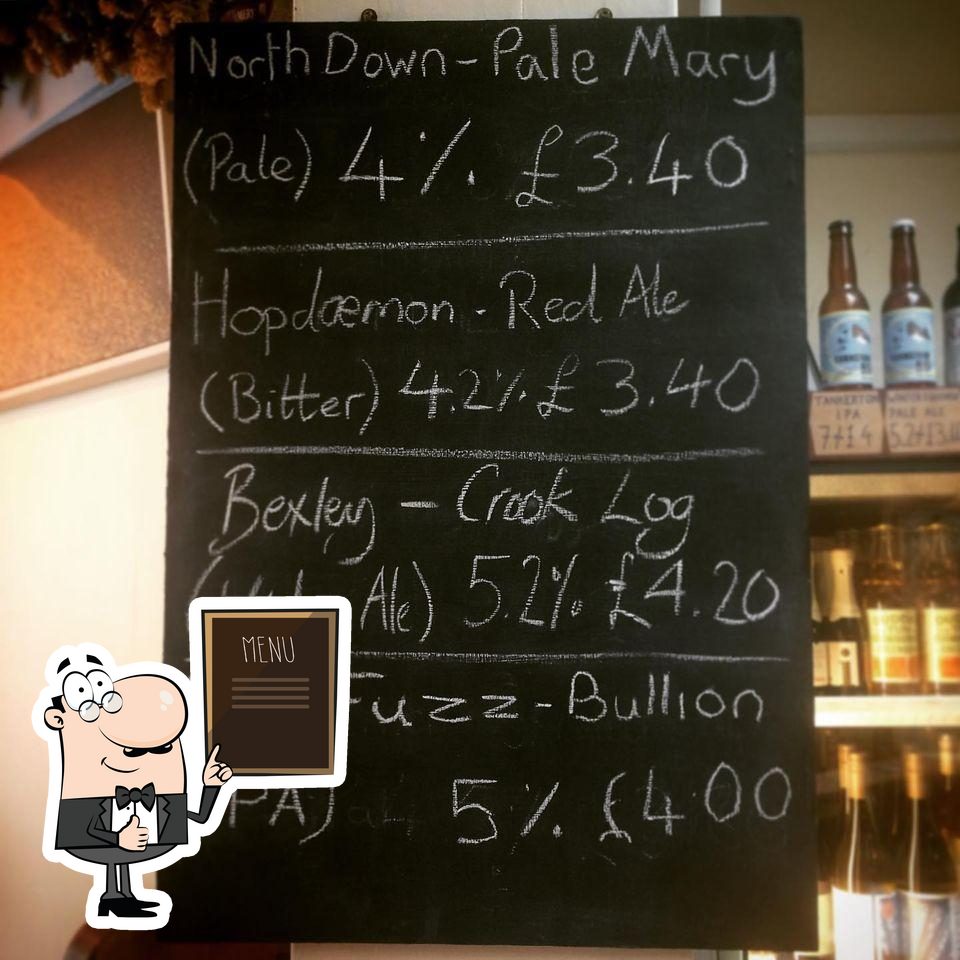 North Down - Pale Mary
(Pale) 4% £3.40
Hopdæmon - Red Ale
(Bitter) 4.2% £3.40
Bexley - Crook Log
Ale) 5.2% £4.20
Fuzz - Bullion
PA) 5% £4.00
MENU
TANKERTON
IPA
7% £4
PALE ALE
5.2%